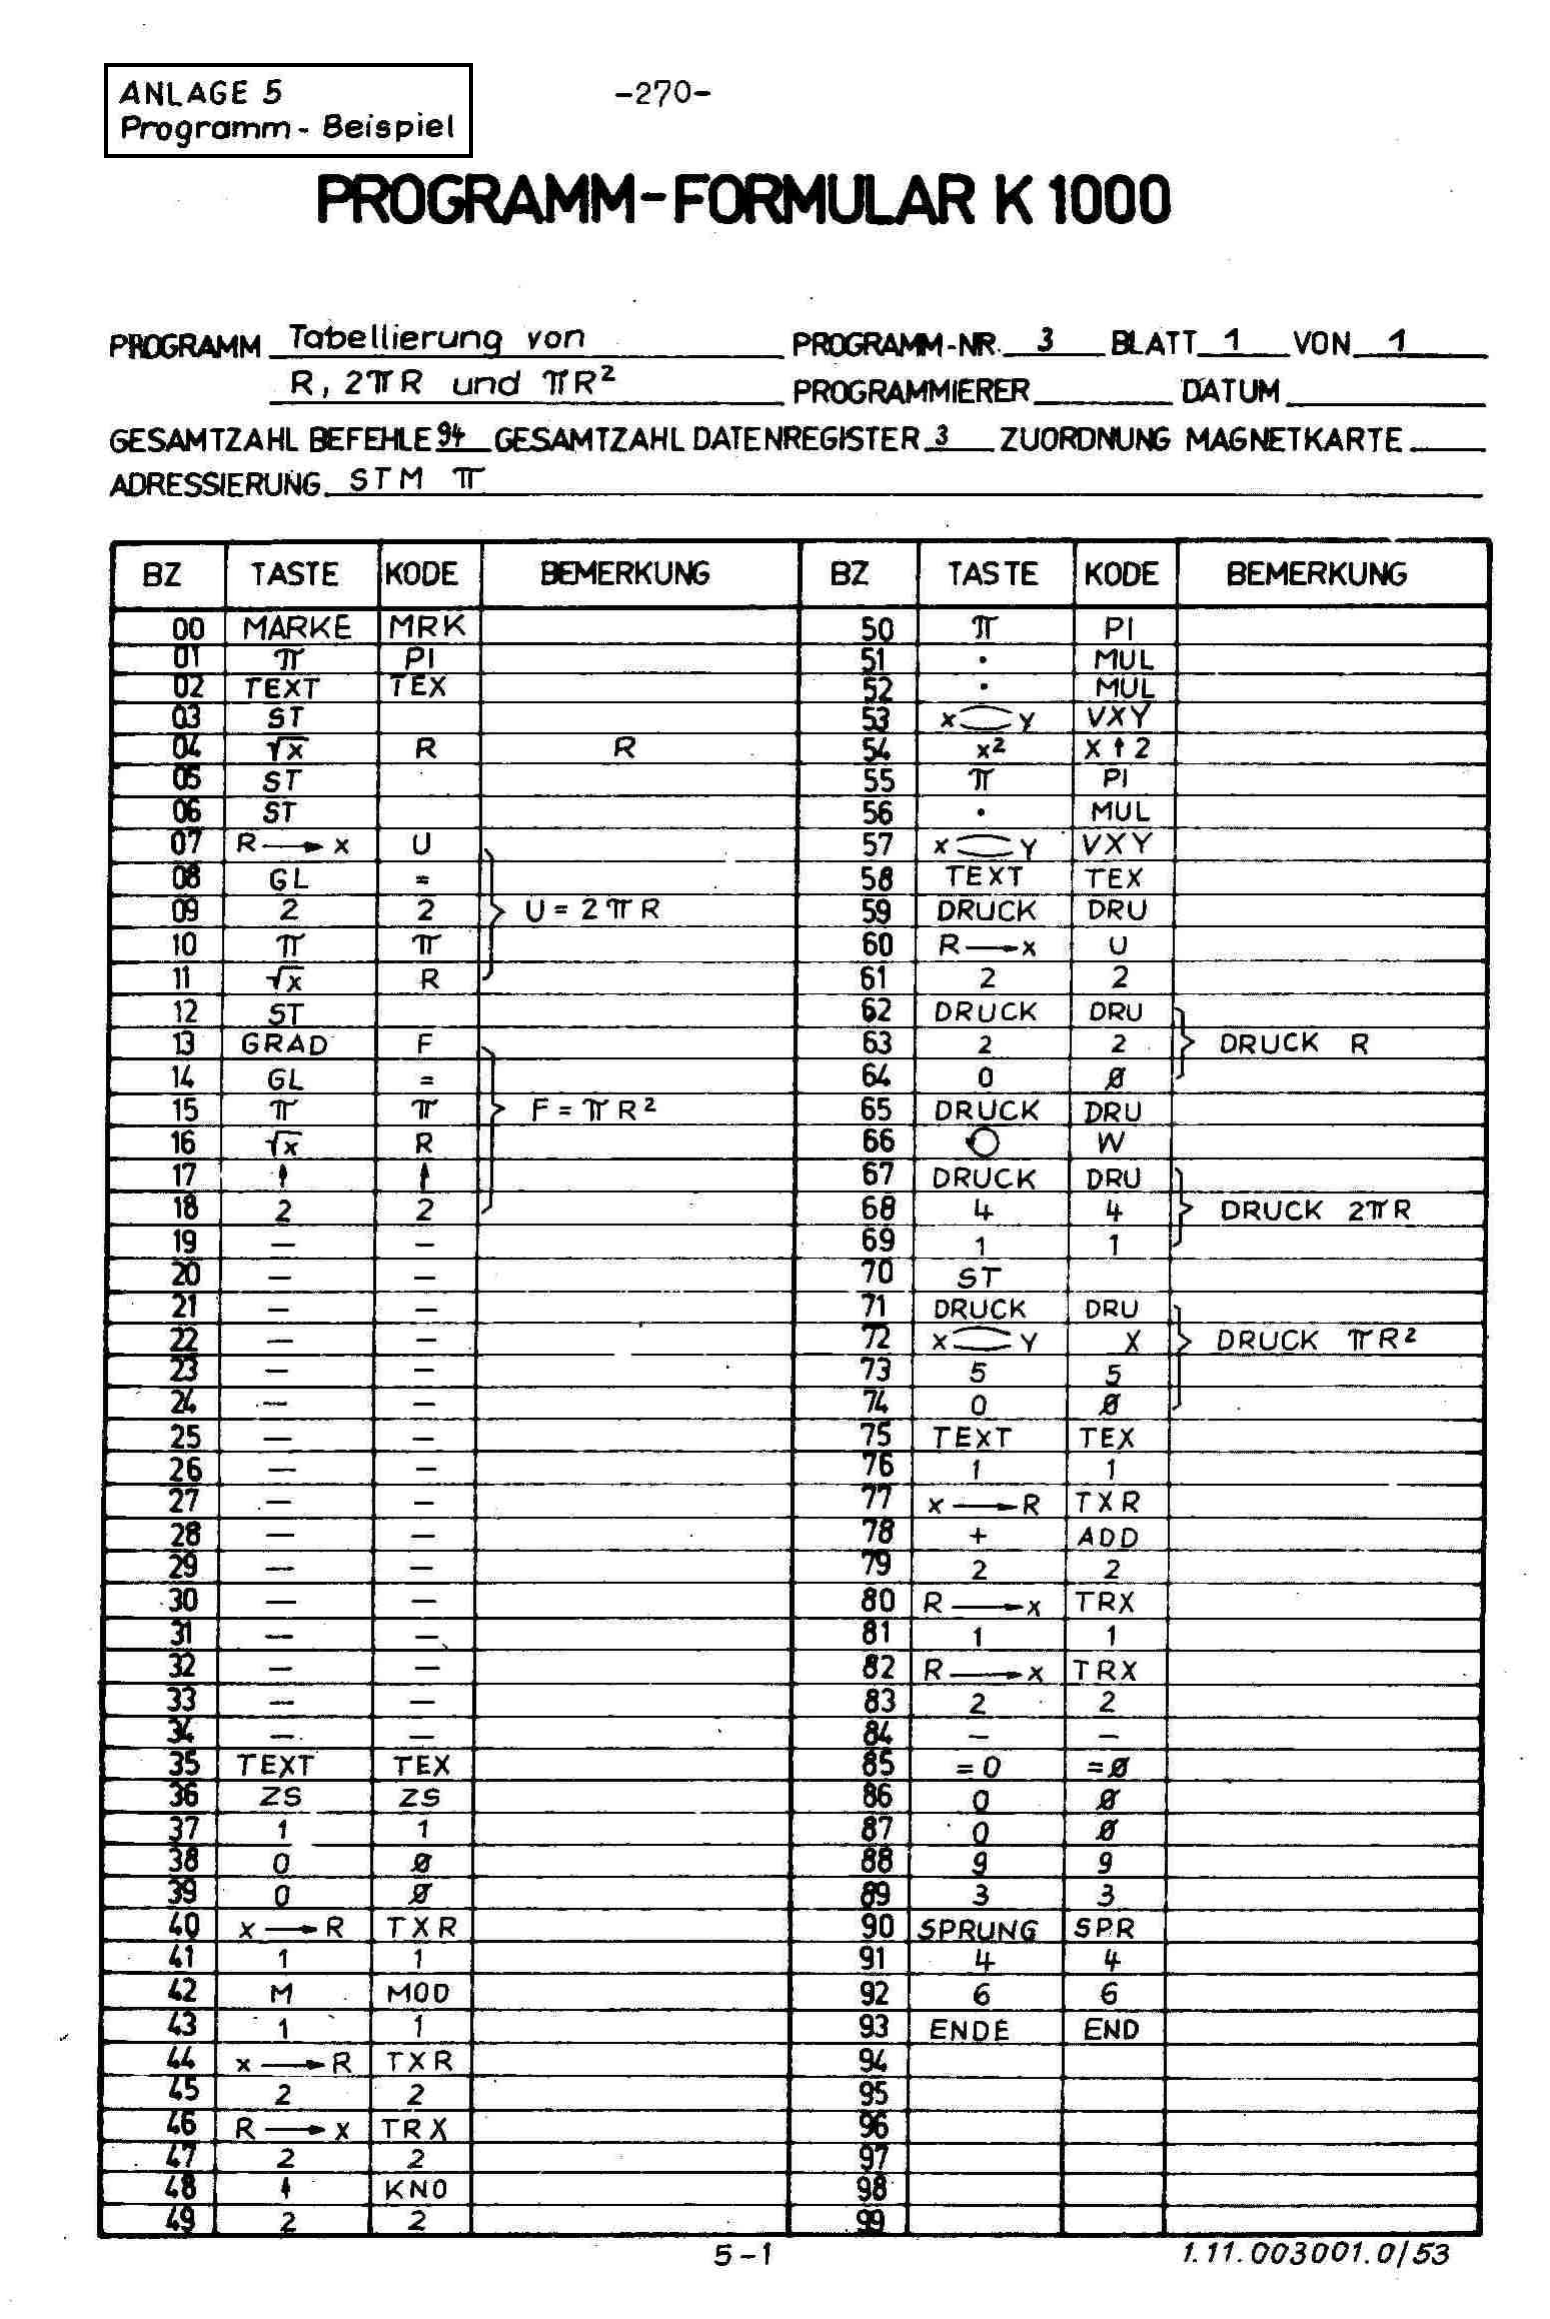 ANLAGE 5
Programm - Beispiel
-270-
PROGRAMM-FORMULAR K 1000
PROGRAMM Tabellierung von PROGRAMM-NR. 3 BLATT 1 VON 1
R, 2πR und πR² PROGRAMMIERER DATUM
GESAMTZAHL BEFEHLE 94 GESAMTZAHL DATENREGISTER 3 ZUORDNUNG MAGNETKARTE
ADRESSIERUNG STM π
BZ TASTE KODE BEMERKUNG BZ TASTE KODE BEMERKUNG
00 MARKE MRK 50 π PI
01 π PI 51 • MUL
02 TEXT TEX 52 • MUL
03 ST 53 x⁐y VXY
04 √x R R 54 x² X↑2
05 ST 55 π PI
06 ST 56 • MUL
07 R→x U 57 x⁐y VXY
08 GL = 58 TEXT TEX
09 2 2 U = 2πR 59 DRUCK DRU
10 π π 60 R→x U
11 √x R 61 2 2
12 ST 62 DRUCK DRU
13 GRAD F 63 2 2 DRUCK R
14 GL = 64 0 Ø
15 π π F = πR² 65 DRUCK DRU
16 √x R 66 W
17 ↑ ↑ 67 DRUCK DRU
18 2 2 68 4 4 DRUCK 2πR
19 — — 69 1 1
20 — — 70 ST
21 — — 71 DRUCK DRU
22 — — 72 x⁐y X DRUCK πR²
23 — — 73 5 5
24 — — 74 0 Ø
25 — — 75 TEXT TEX
26 — — 76 1 1
27 — — 77 x→R TXR
28 — — 78 + ADD
29 — — 79 2 2
30 — — 80 R→x TRX
31 — — 81 1 1
32 — — 82 R→x TRX
33 — — 83 2 2
34 — — 84 — —
35 TEXT TEX 85 =0 =Ø
36 ZS ZS 86 0 Ø
37 1 1 87 0 Ø
38 0 Ø 88 9 9
39 0 Ø 89 3 3
40 x→R TXR 90 SPRUNG SPR
41 1 1 91 4 4
42 M MOD 92 6 6
43 1 1 93 ENDE END
44 x→R TXR 94
45 2 2 95
46 R→x TRX 96
47 2 2 97
48 ↑ KNO 98
49 2 2 99
5-1
1.11.003001.0/53